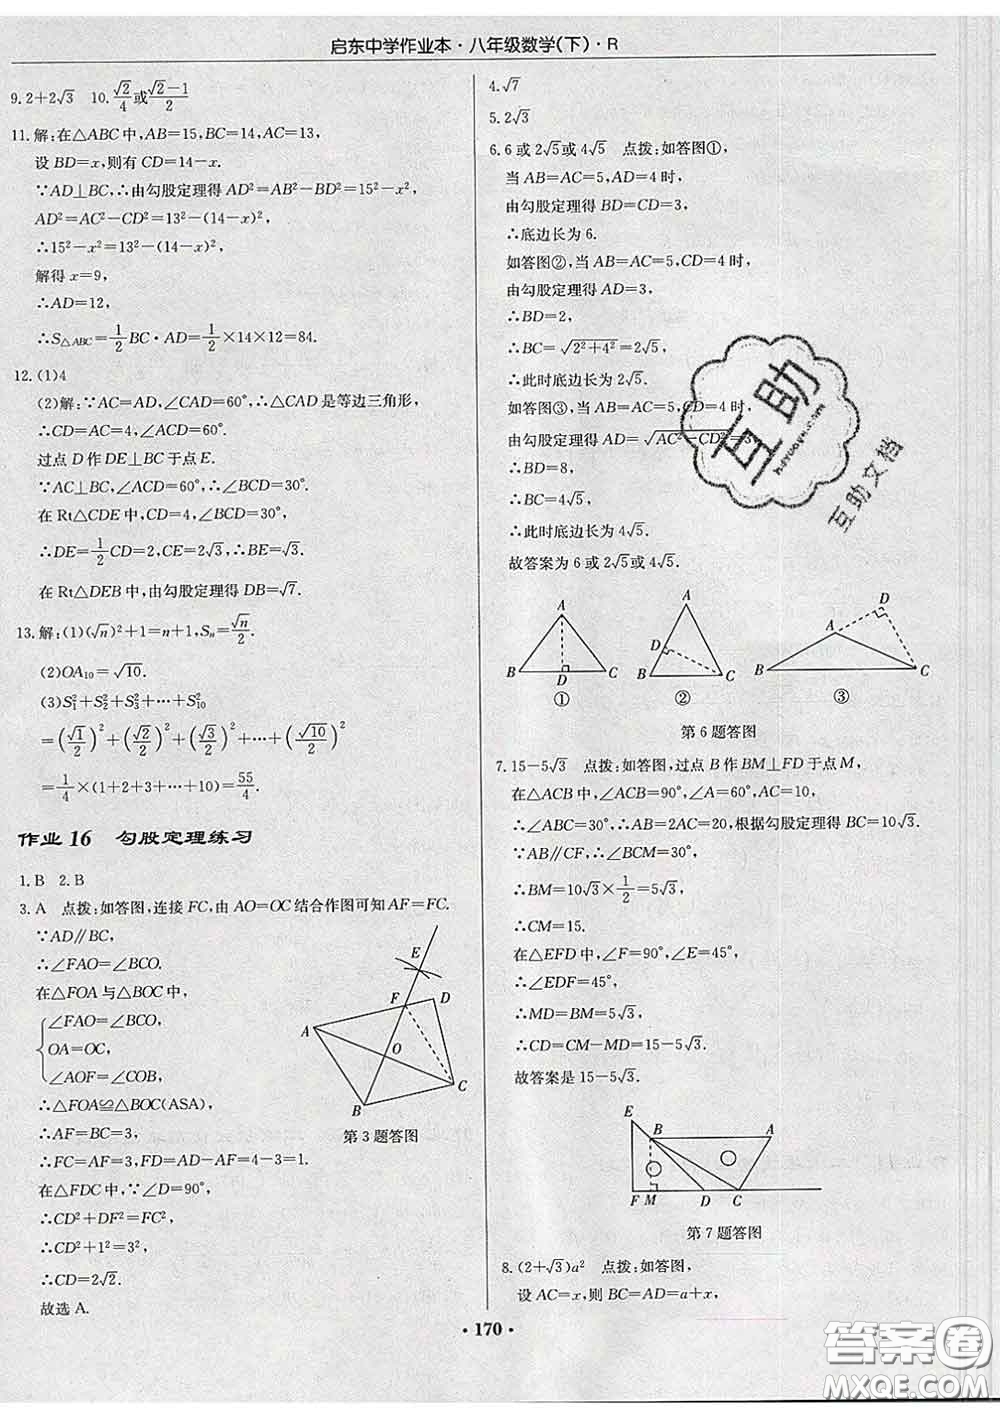 启东中学作业本·八年级数学(下)·R
9.2+2√3 10.√2/4或(√2-1)/2
11.解:在△ABC中,AB=15,BC=14,AC=13,
设BD=x,则有CD=14-x.
∵AD⊥BC,∴由勾股定理得AD²=AB²-BD²=15²-x²,
AD²=AC²-CD²=13²-(14-x)²,
∴15²-x²=13²-(14-x)²,
解得x=9,
∴AD=12,
∴S△ABC=1/2BC·AD=1/2×14×12=84.
12.(1)4
(2)解:∵AC=AD,∠CAD=60°,∴△CAD是等边三角形,
∴CD=AC=4,∠ACD=60°.
过点D作DE⊥BC于点E.
∵AC⊥BC,∠ACD=60°,∴∠BCD=30°.
在Rt△CDE中,CD=4,∠BCD=30°,
∴DE=1/2CD=2,CE=2√3,∴BE=√3.
在Rt△DEB中,由勾股定理得DB=√7.
13.解:(1)(√n)²+1=n+1,Sₙ=√n/2.
(2)OA₁₀=√10.
(3)S₁²+S₂²+S₃²+…+S₁₀²
=(√1/2)²+(√2/2)²+(√3/2)²+…+(√10/2)²
=1/4×(1+2+3+…+10)=55/4.
作业16 勾股定理练习
1.B 2.B
3.A 点拨:如答图,连接FC,由AO=OC结合作图可知AF=FC.
∵AD∥BC,
∴∠FAO=∠BCO.
在△FOA与△BOC中,
∠FAO=∠BCO,
OA=OC,
∠AOF=∠COB,
∴△FOA≌△BOC(ASA),
∴AF=BC=3,
∴FC=AF=3,FD=AD-AF=4-3=1.
在△FDC中,∵∠D=90°,
∴CD²+DF²=FC²,
∴CD²+1²=3²,
∴CD=2√2.
故选A.
E
F
D
A
O
C
B
第3题答图
4.√7
5.2√3
6.6或2√5或4√5 点拨:如答图①,
当AB=AC=5,AD=4时,
由勾股定理得BD=CD=3,
∴底边长为6.
如答图②,当AB=AC=5,CD=4时,
由勾股定理得AD=3,
∴BD=2,
∴BC=√(2²+4²)=2√5,
∴此时底边长为2√5.
如答图③,当AB=AC=5,CD=4时,
由勾股定理得AD=√(AC²-CD²)=3,
∴BD=8,
∴BC=4√5,
∴此时底边长为4√5.
故答案为6或2√5或4√5.
A
B D C
①
A
D
B C
②
A D
B C
③
第6题答图
7.15-5√3 点拨:如答图,过点B作BM⊥FD于点M,
在△ACB中,∠ACB=90°,∠A=60°,AC=10,
∴∠ABC=30°,∴AB=2AC=20,根据勾股定理得BC=10√3.
∵AB∥CF,∴∠BCM=30°,
∴BM=10√3×1/2=5√3,
∴CM=15.
在△EFD中,∠F=90°,∠E=45°,
∴∠EDF=45°,
∴MD=BM=5√3,
∴CD=CM-MD=15-5√3.
故答案是15-5√3.
E
B A
F M D C
第7题答图
8.(2+√3)a² 点拨:如答图,
设AC=x,则BC=AD=a+x,
·170·
互助
互助文档
答案卷
MXQE.COM